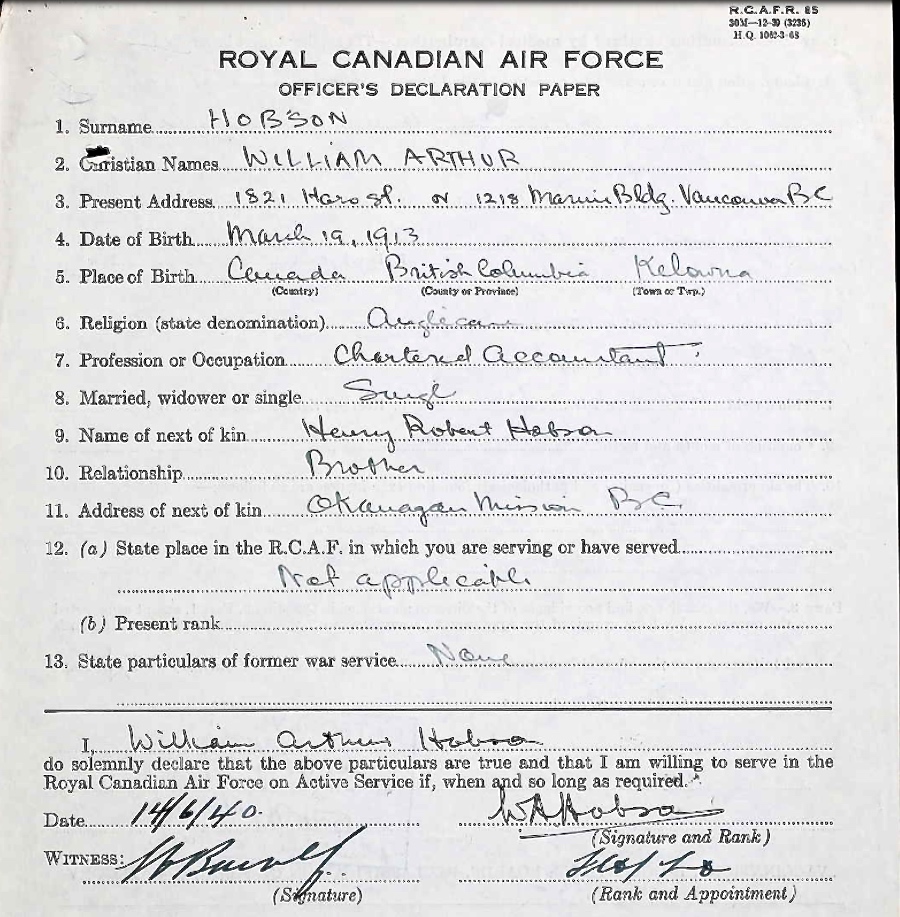 R.C.A.F.R. 85
30M—12-39 (3235)
H.Q. 1062-3-68
ROYAL CANADIAN AIR FORCE
OFFICER'S DECLARATION PAPER
1. Surname HOBSON
2. Christian Names WILLIAM ARTHUR
3. Present Address 1821 Haro St. or 1218 Marine Bldg. Vancouver BC
4. Date of Birth March 19, 1913
5. Place of Birth Canada British Columbia Kelowna
(Country) (County or Province) (Town or Twp.)
6. Religion (state denomination) Anglican
7. Profession or Occupation Chartered Accountant
8. Married, widower or single Single
9. Name of next of kin Henry Robert Hobson
10. Relationship Brother
11. Address of next of kin Okanagan Mission BC.
12. (a) State place in the R.C.A.F. in which you are serving or have served
Not applicable
(b) Present rank
13. State particulars of former war service None
I, William Arthur Hobson
do solemnly declare that the above particulars are true and that I am willing to serve in the
Royal Canadian Air Force on Active Service if, when and so long as required.
Date 14/6/40. WAHobson
(Signature and Rank)
WITNESS:
(Signature) (Rank and Appointment)